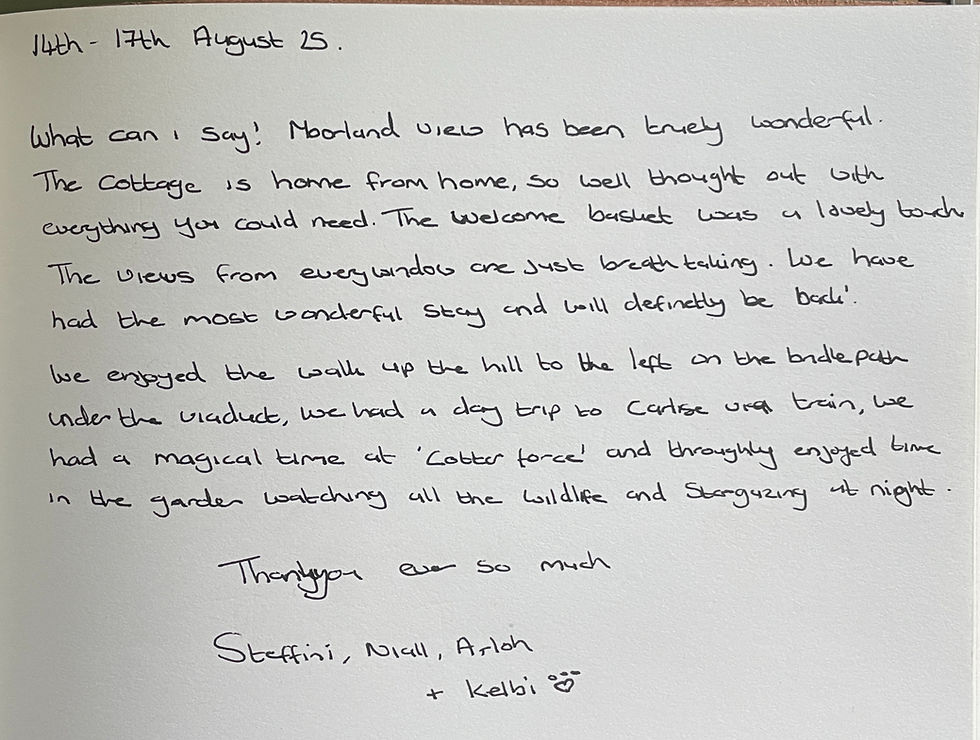 14th - 17th August 25.
What can i say! Moorland view has been truely wonderful.
The Cottage is home from home, so well thought out with
everything you could need. The welcome basket was a lovely touch
The views from every window are just breathtaking. We have
had the most wonderful stay and will definetly be back!
We enjoyed the walk up the hill to the left on the bridlepath
under the viaduct, we had a day trip to Carlise via train, we
had a magical time at 'Cotter force' and throughly enjoyed time
in the garden watching all the wildlife and Stargazing at night.
Thankyou ever so much
Steffini, Niall, Arloh
+ Kelbi